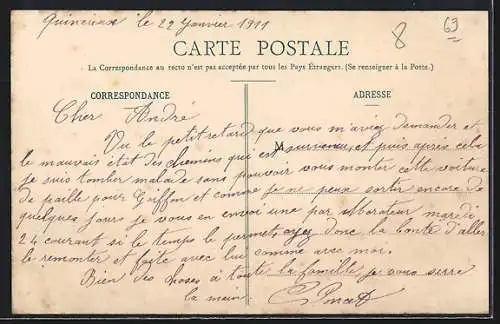 Quincieux le 22 Janvier 1911
8
63
CARTE POSTALE
La Correspondance au recto n'est pas acceptée par tous les Pays Étrangers. (Se renseigner à la Poste.)
CORRESPONDANCE
ADRESSE
Cher André
Vu le petit retard que vous m'aviez demander et
M
le mauvais état des chemins qui est survenu, et puis après cela
je suis tomber malade sans pouvoir vous monter cette voiture
de paille pour Griffon et comme je ne peux sortir encore de
quelques jours je vous en envoi une par mardi
24 courant si le temps le permet, ayez donc la bonté d'aller
le remonter et faite avec lui comme avec moi.
Bien des choses à toute la famille je vous serre
la main